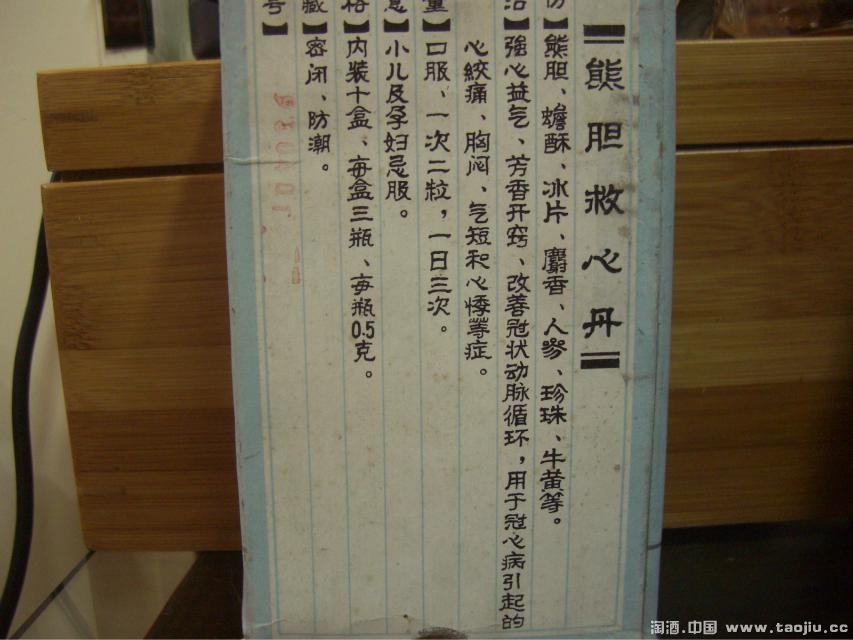 熊胆救心丹
份】熊胆、蟾酥、冰片、麝香、人参、珍珠、牛黄等。
治】強心益气、芳香开窍、改善冠状动脉循环，用于冠心病引起的
心絞痛、胸闷、气短和心悸等症。
量】口服、一次二粒，一日三次。
意】小儿及孕妇忌服。
格】内装十盒、每盒三瓶、每瓶0.5克。
藏】密闭、防潮。
号】
淘酒.中国 www.taojiu.cc